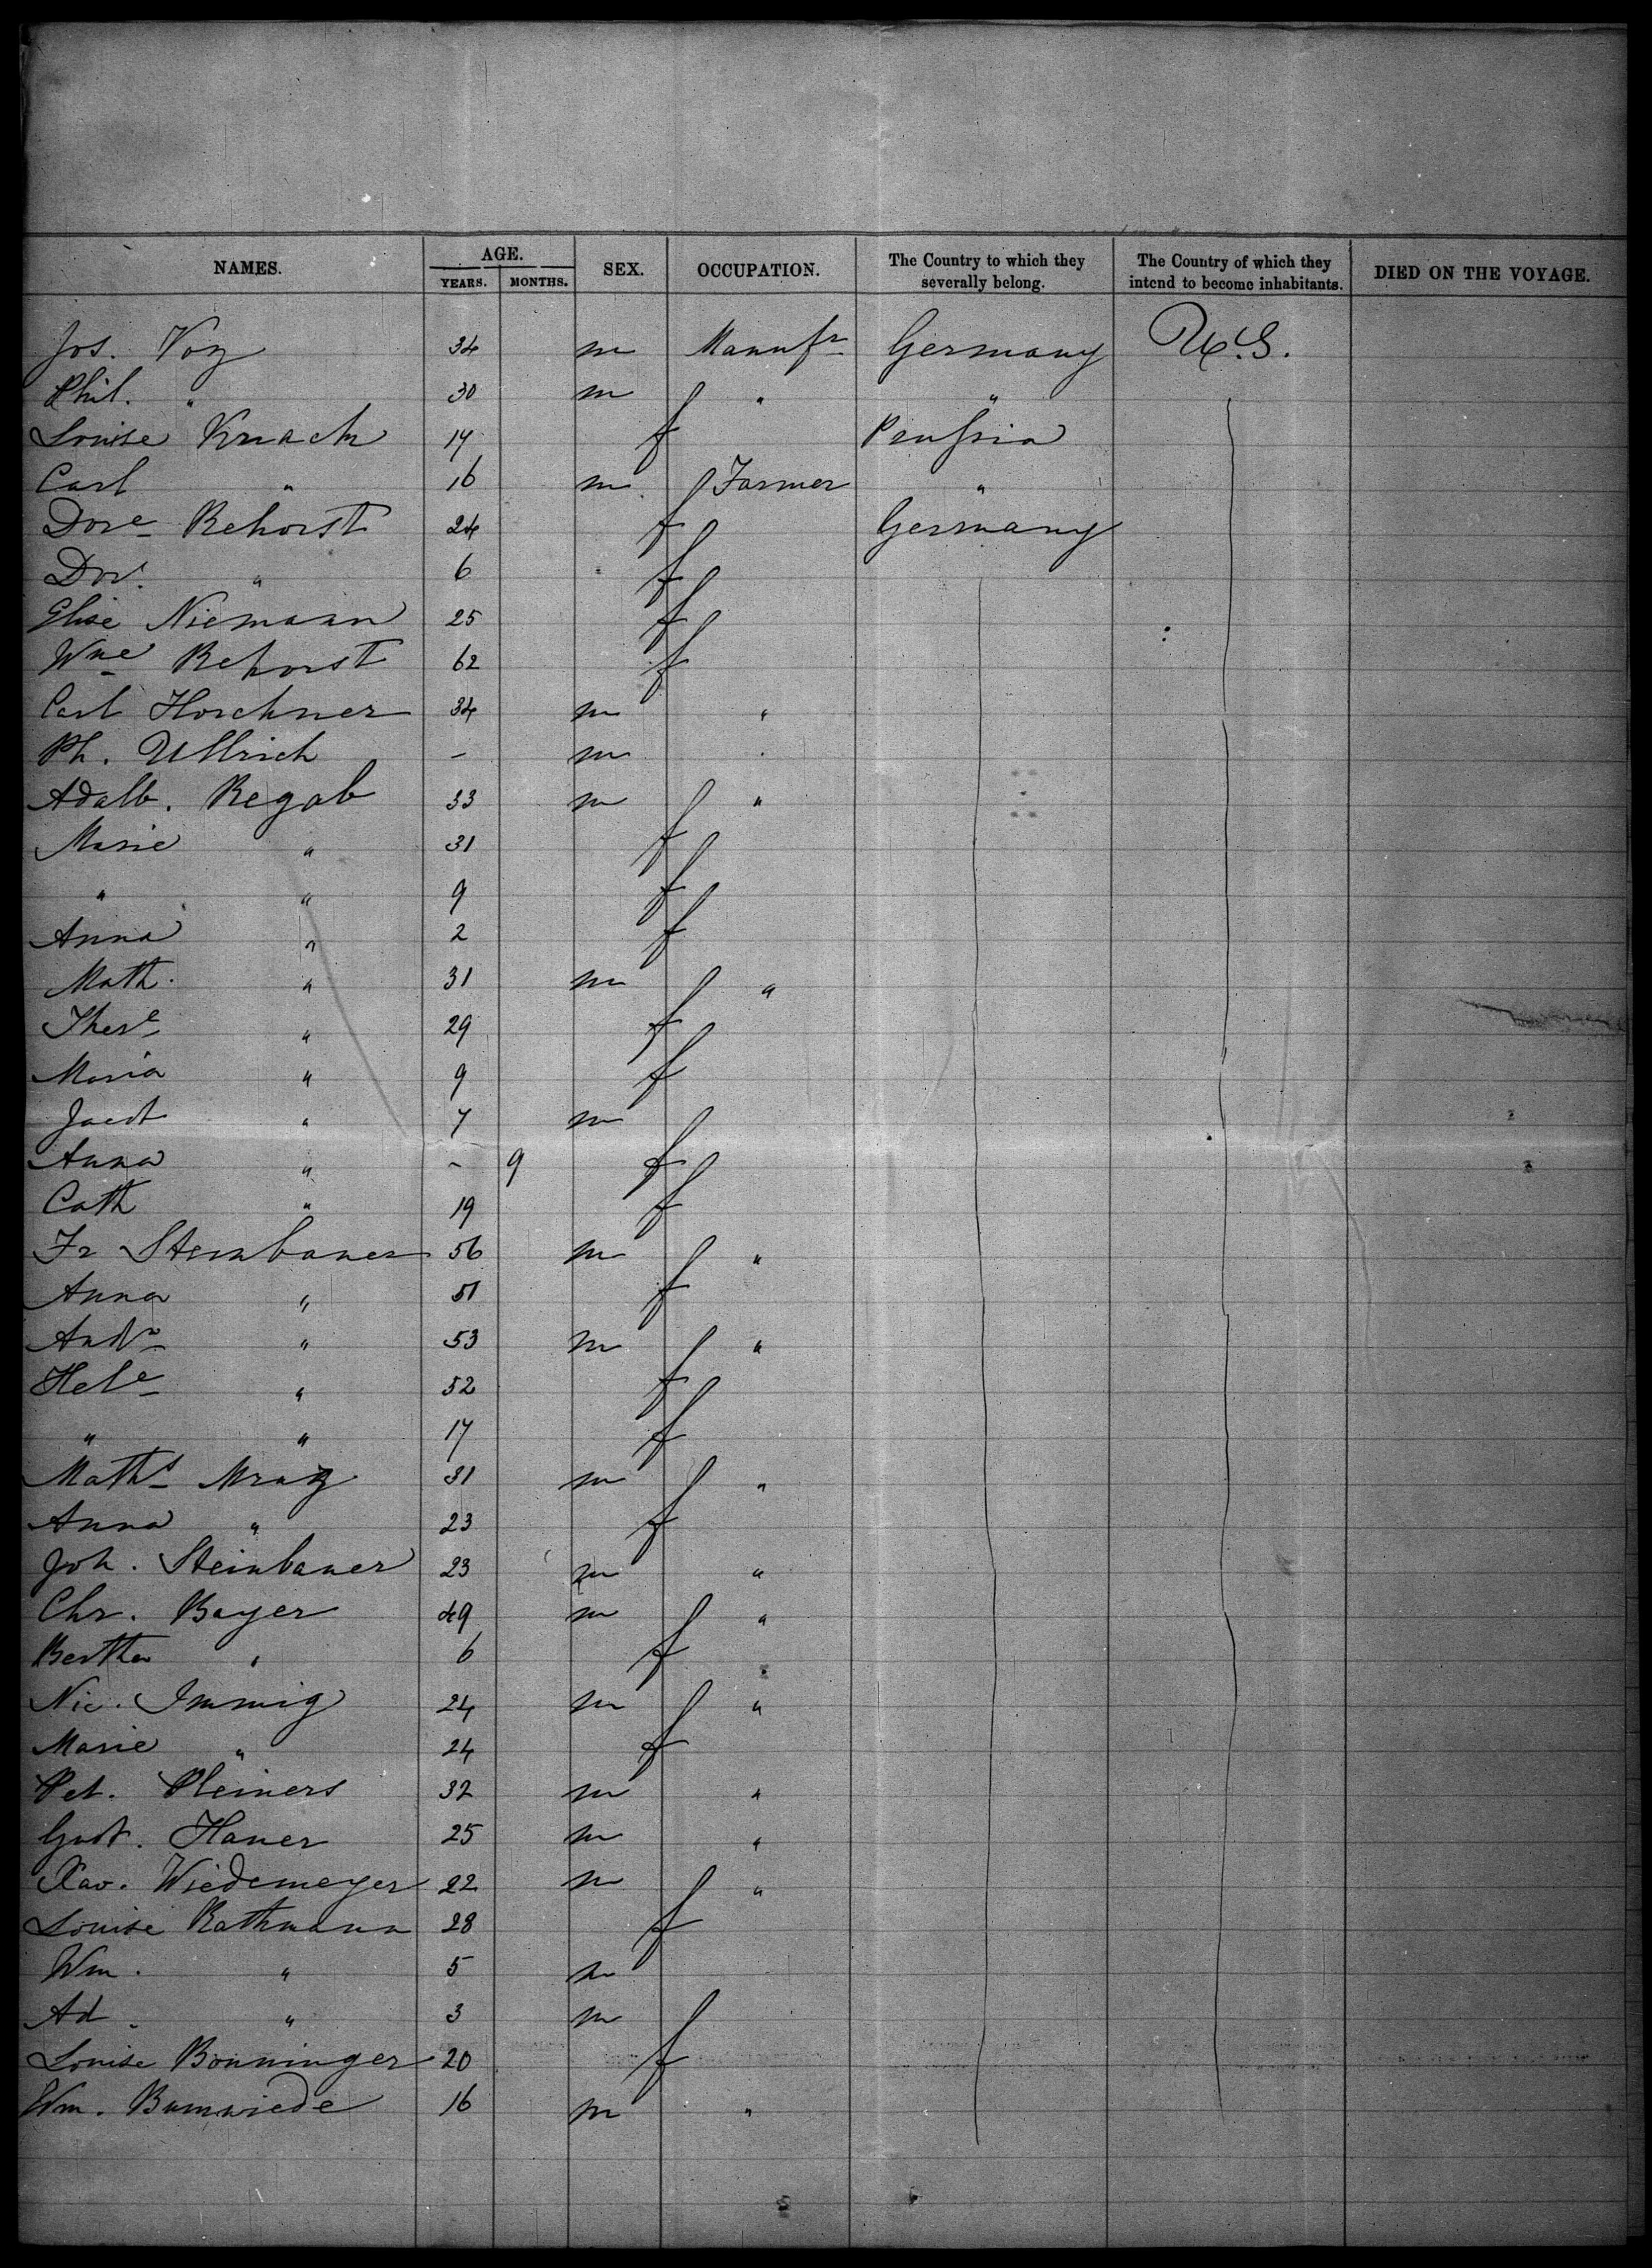 NAMES. AGE. SEX. OCCUPATION. The Country to which they severally belong. The Country of which they intend to become inhabitants. DIED ON THE VOYAGE.
YEARS. MONTHS.
Jos. Voz 34 m Manufr Germany U.S.
Phil. " 30 m " "
Louise Knach 17 f Prussia
Carl " 16 m Farmer "
Dore Rehorst 24 f Germany
Dor. " 6 f
Elise Niemann 25 f
Wne Rehorst 62 f
Carl Horchner 34 m "
Ph. Ullrich - m "
Adalb. Regab 33 m "
Marie " 31 f
" " 9 f
Anna " 2 f
Math. " 31 m "
There " 29 f
Maria " 9 f
Jacob " 7 m
Anna " - 9 f
Cath " 19 f
Fr Steinbauer 56 m "
Anna " 51 f
Andr " 53 m "
Hele " 52 f
" " 17 f
Maths Mraz 31 m "
Anna " 23 f
Joh. Steinbauer 23 m "
Chr. Bayer 49 m "
Bertha " 6 f
Nic. Immig 24 m "
Marie " 24 f
Pet. Pleiners 32 m "
Gust. Hauer 25 m "
Xav. Wiedemeyer 22 m "
Louise Rathmann 28 f
Wm. " 5 m
Ad. " 3 m
Louise Bonninger 20 f
Wm. Bumwiede 16 m "